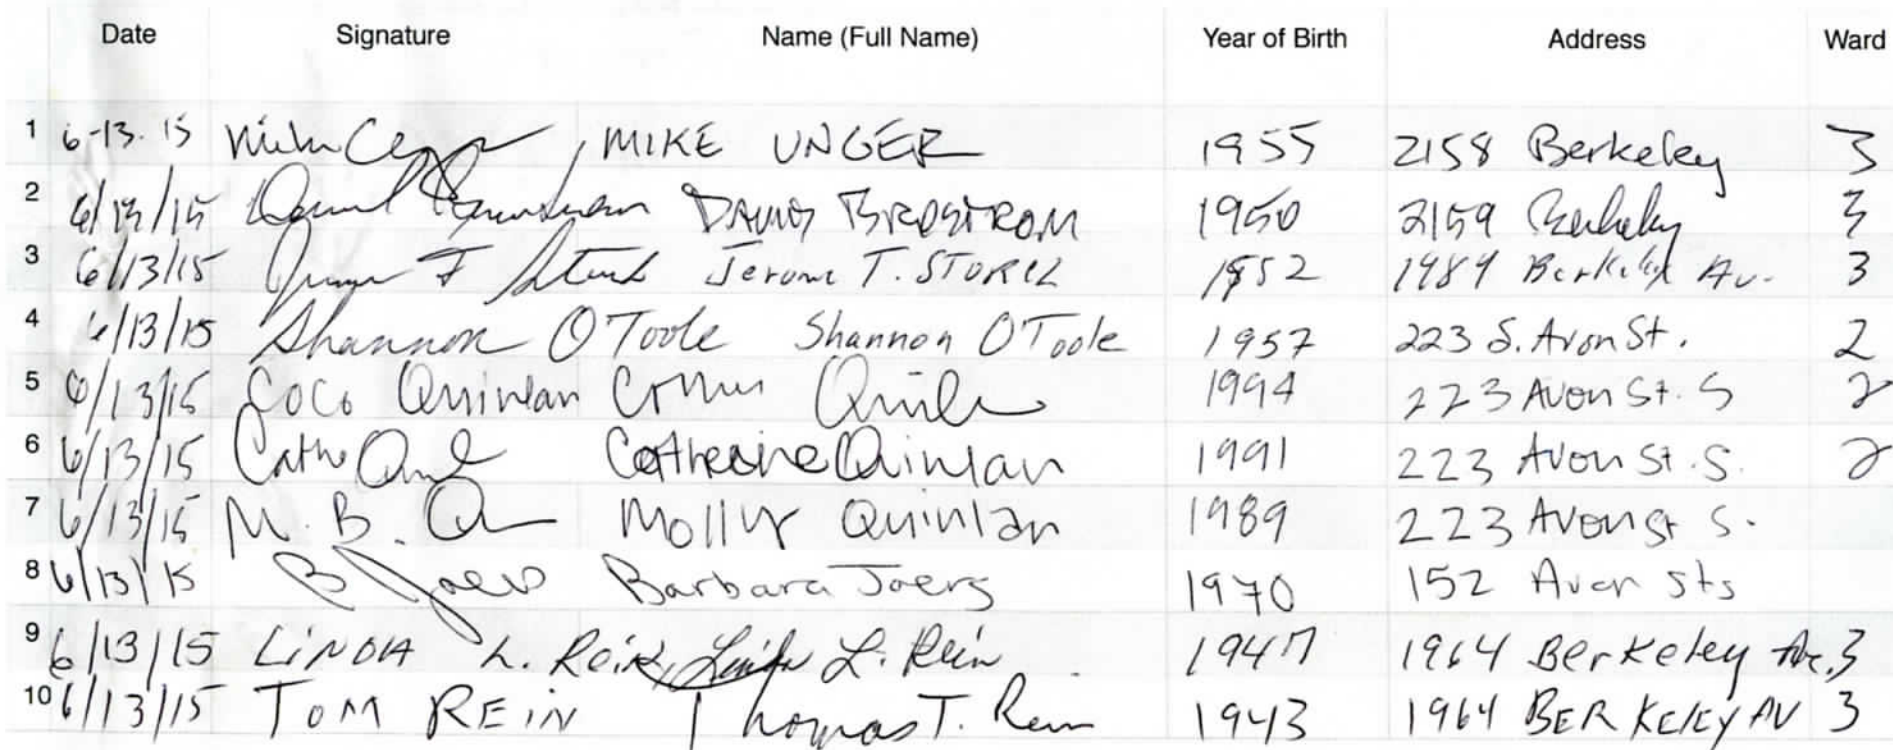 Date Signature Name (Full Name) Year of Birth Address Ward
1 6-13-15 MIKE UNGER 1955 2158 Berkeley 3
2 6/13/15 1950 2159 Berkeley 3
3 6/13/15 Jerome T. 1952 1984 Berkeley Av. 3
4 6/13/15 Shannon O'Toole Shannon O'Toole 1957 223 S. Avon St. 2
5 6/13/15 Coco Quinlan 1994 223 Avon St. S 2
6 6/13/15 Catherine Quinlan 1991 223 Avon St. S. 2
7 6/13/15 M. B. Molly Quinlan 1989 223 Avon St S.
8 6/13/15 B Joers Barbara Joers 1970 152 Avon St S
9 6/13/15 LINDA L. Rein, Linda L. Rein 1947 1964 Berkeley Av. 3
10 6/13/15 TOM REIN Thomas T. Rein 1943 1964 BERKELEY AV 3